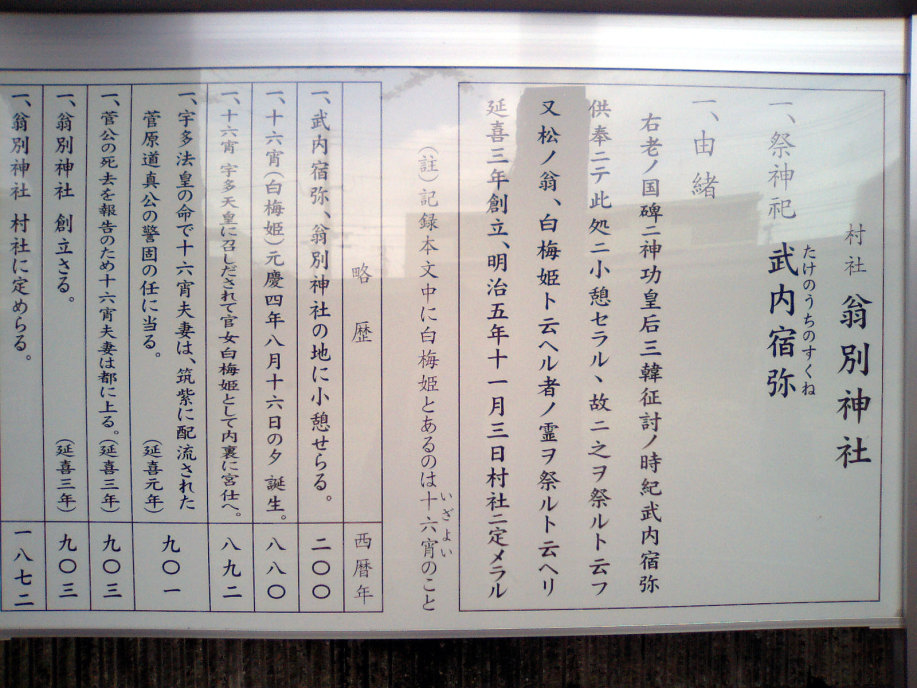 村社 翁別神社
一、祭神祀 武内宿弥
たけのうちのすくね
一、由緒
右老ノ国碑ニ神功皇后三韓征討ノ時紀武内宿弥
供奉ニテ此処ニ小憩セラルヽ故ニ之ヲ祭ルト云フ
又松ノ翁、白梅姫ト云ヘル者ノ霊ヲ祭ルト云ヘリ
延喜三年創立、明治五年十一月三日村社ニ定メラル
(註)記録本文中に白梅姫とあるのは十六宵のこと
いざよい
略歴 西暦年
一、武内宿弥、翁別神社の地に小憩せらる。 二〇〇
一、十六宵(白梅姫)元慶四年八月十六日の夕 誕生。 八八〇
一、十六宵 宇多天皇に召しだされて官女白梅姫として内裏に宮仕へ。 八九二
一、宇多法皇の命で十六宵夫妻は、筑紫に配流された
菅原道真公の警固の任に当る。 (延喜元年) 九〇一
一、菅公の死去を報告のため十六宵夫妻は都に上る。(延喜三年) 九〇三
一、翁別神社 創立さる。 (延喜三年) 九〇三
一、翁別神社 村社に定めらる。 一八七二